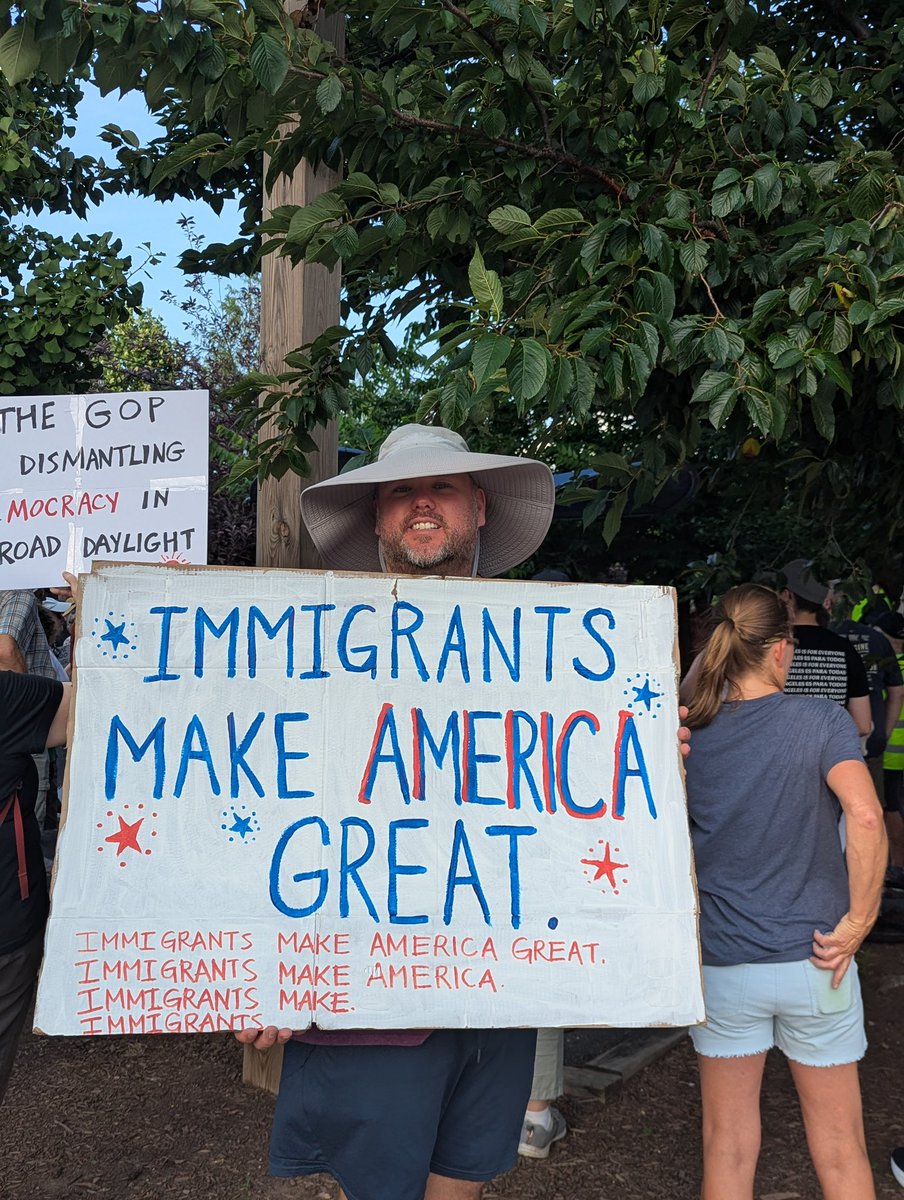 THE GOP
DISMANTLING
MOCRACY IN
ROAD DAYLIGHT
IMMIGRANTS
MAKE AMERICA
GREAT.
IMMIGRANTS MAKE AMERICA GREAT.
IMMIGRANTS MAKE AMERICA.
IMMIGRANTS MAKE.
IMMIGRANTS
IS FOR EVERYONE
ANGELES ES PARA TODOS
IS FOR EVERYONE